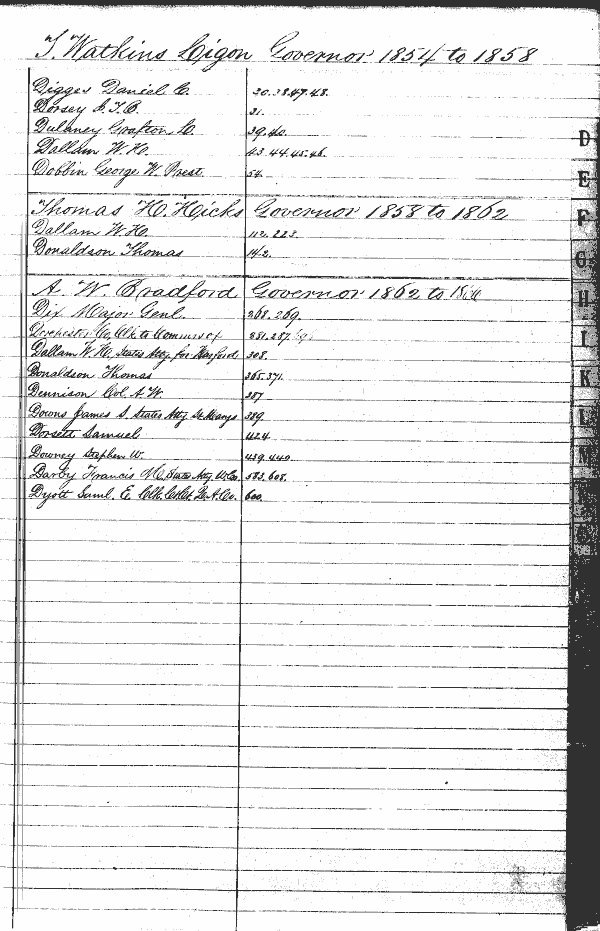 T. Watkins Ligon Governor 1854 to 1858
Digges Daniel C. 30.38.47.48.
Dorsey 31.
Dulaney Grafton L. 39.40.
Dallam W. H. 43.44.45.46.
Dobbin George W. Prest. 54.
Thomas H. Hicks Governor 1858 to 1862
Dallam W. H. 112.223.
Donaldson Thomas 142.
A. W. Bradford Governor 1862 to
Dix Major Genl. 268.269.
Dorchester Co. Clk to Commrs of 281.287.
Dallam W. H. States Atty. for Harford 308.
Donaldson Thomas 365.371.
Dennison Col. A. W. 387
Downs James S. States Atty St Marys 389.
Dorsett Samuel 424.
Downey Stephen W. 439.440.
Darby Francis M. States Atty W. Co. 583.608.
Dyott Saml. E. Clk. A. Co. 600.
D
E
F
G
H
I
K
L
M